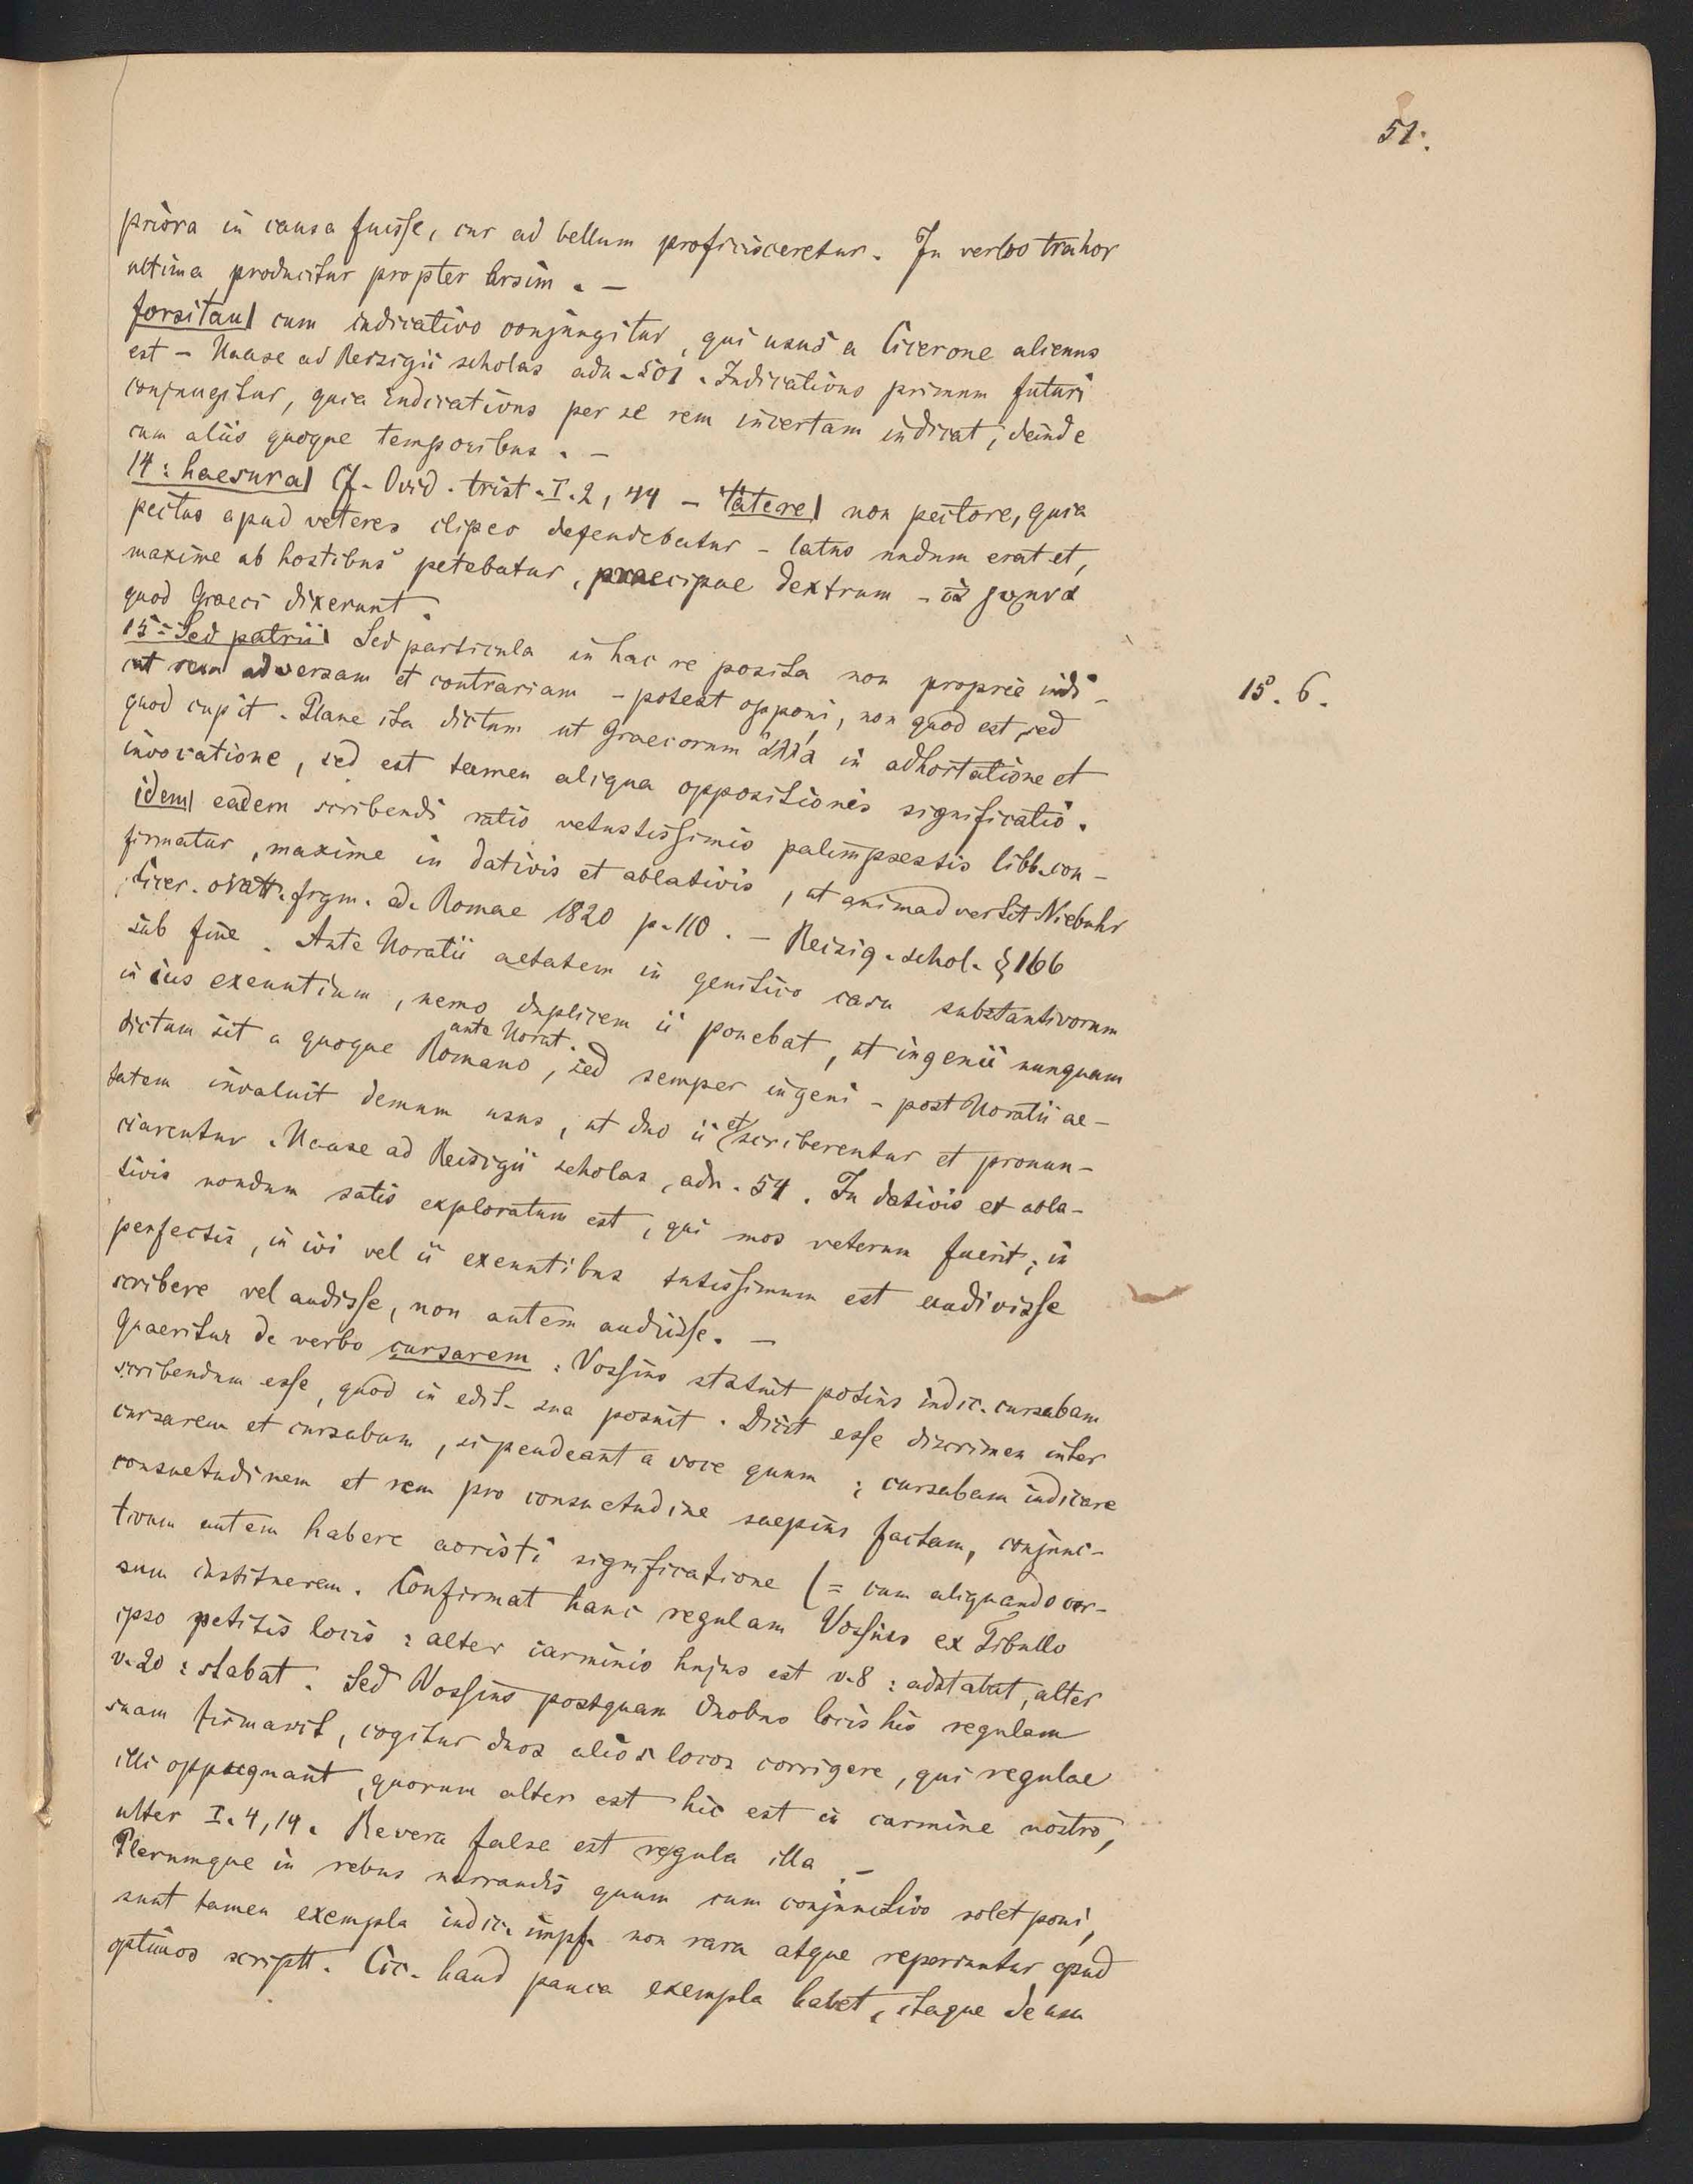 51.
priora in causa fuisse, cur ad bellum proficisceretur. In verbo trahor
ultima producitur propter arsim. —
forsitan| cum indicativo conjungitur, qui usus a Cicerone alienus
est — Haase ad Reisigii scholas adn. 501. Indicativus primum futuri
conjungitur, quia indicativus per se rem incertam indicat, deinde
cum aliis quoque temporibus. —
14: haesura| Cf. Ovid. trist. I. 2, 44 — latere| non pectore, quia
pectus apud veteres clipeo defendebatur — latus nudum erat et,
maxime ab hostibus petebatur, praecipue dextrum — τὰ γυμνὰ
quod Graeci dixerunt.
15: Sed patrii| Sed particula in hac re posita non proprie indi-
cat rem adversam et contrariam — potest opponi, non quod est, sed
quod cupit. Plane ita dictum ut Graecorum ἀλλά in adhortatione et
invocatione, sed est tamen aliqua oppositionis significatio.
15. 6.
idem| eadem scribendi ratio vetustissimis palimpsestis libb. con-
firmatur, maxime in dativis et ablativis, ut animadvertit Niebuhr
Cicer. oratt. frgm. ed. Romae 1820 p. 110. — Reisig. schol. § 166
sub fine. Ante Horatii aetatem in genitivo casu substantivorum
in ius exeuntium, nemo duplicem ii ponebat, ut ingenii nunquam
dictum sit a quoque Romano ante Horat., sed semper ingeni — post Horatii ae-
tatem invaluit demum usus, ut duo ii et scriberentur et pronun-
ciarentur. Haase ad Reisigii scholas, adn. 54. In dativis et abla-
tivis nondum satis exploratum est, qui mos veterum fuerit; in
perfectis, in ivi vel ii exeuntibus tutissimum est audivisse
scribere vel audisse, non autem audiisse. —
Quaeritur de verbo cursarem: Vossius statuit potius indic. cursabam
scribendum esse, quod in edit. sua posuit. Dicit esse discrimen inter
cursarem et cursabam, si pendeant a voce quum; cursabam indicare
consuetudinem et rem pro consuetudine saepius factam, conjunc-
tivum autem habere aoristi significatione (= cum aliquando cur-
sum instituerem. Confirmat hanc regulam Vossius ex Tibullo
ipso petitis locis: alter carminis hujus est v. 8: adstabat, alter
v. 20: stabat. Sed Vossius postquam duobus locis his regulam
suam firmavit, cogitur duos alios locos corrigere, qui regulae
illi oppugnant, quorum alter est hic est in carmine nostro,
alter I. 4, 14. Revera falsa est regula illa. —
Plerumque in rebus narrandis quum cum conjunctivo solet poni,
sunt tamen exempla indic. impf. non rara atque reperiuntur apud
optimos scriptt. Cic. haud pauca exempla habet, itaque de usu